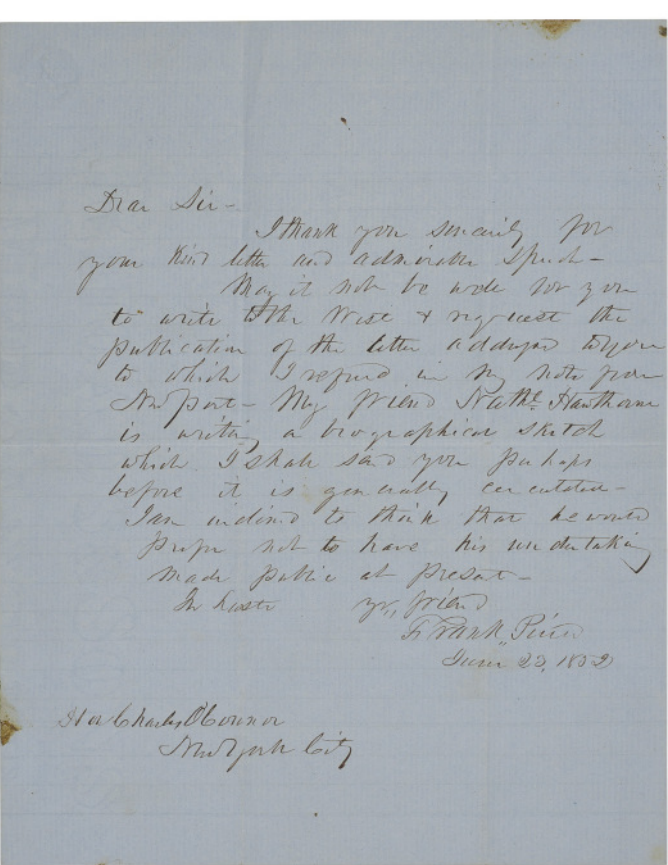 Dear Sir-
I thank you sincerely for
your kind letter and admirable speech-
May it not be well for you
to write to the West & request the
publication of the letter addressed to you
to which I referred in my note from
Newport- My friend Nathl Hawthorne
is writing a biographical sketch
which I shall send you perhaps
before it is generally circulated-
I am inclined to think that he would
prefer not to have his undertaking
made public at present-
In haste yr,, friend
Frank,, Pierce
June 1852
Hon Charles O'Connor
New York City